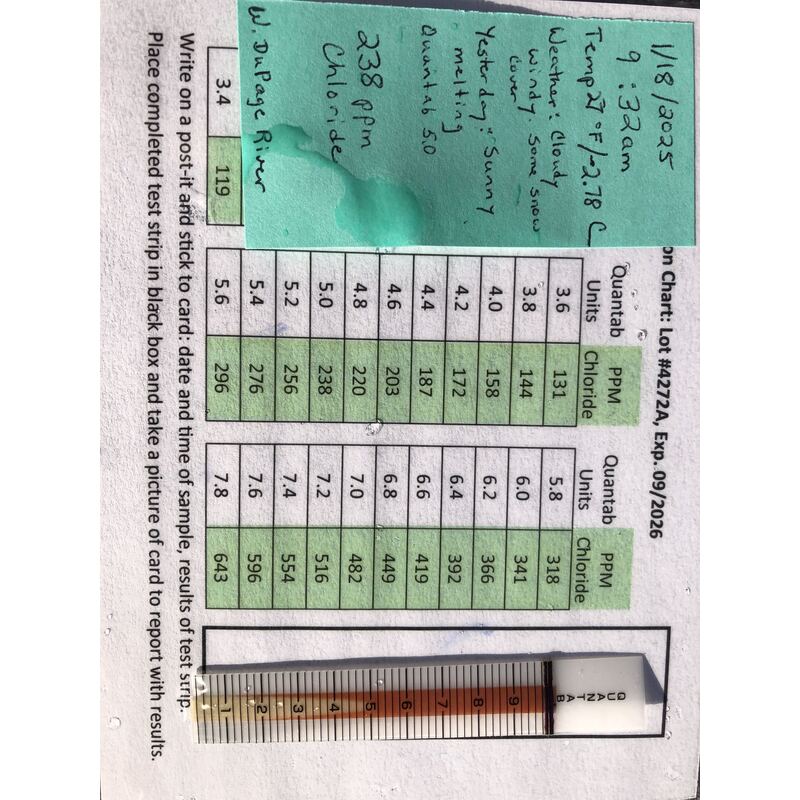 on Chart: Lot #4272A, Exp. 09/2026
1/18/2025
9:32am
Temp 27 °F/-2.78 C
Weather: Cloudy
windy. Some snow
cover
Yesterday: Sunny
melting
Quantab 5.0
238 ppm
Chloride
W. DuPage River
3.4 119
Quantab Units PPM Chloride
3.6 131
3.8 144
4.0 158
4.2 172
4.4 187
4.6 203
4.8 220
5.0 238
5.2 256
5.4 276
5.6 296
Quantab Units PPM Chloride
5.8 318
6.0 341
6.2 366
6.4 392
6.6 419
6.8 449
7.0 482
7.2 516
7.4 554
7.6 596
7.8 643
QUANTAB
9
8
7
6
5
4
3
2
1
Write on a post-it and stick to card: date and time of sample, results of test strip.
Place completed test strip in black box and take a picture of card to report with results.